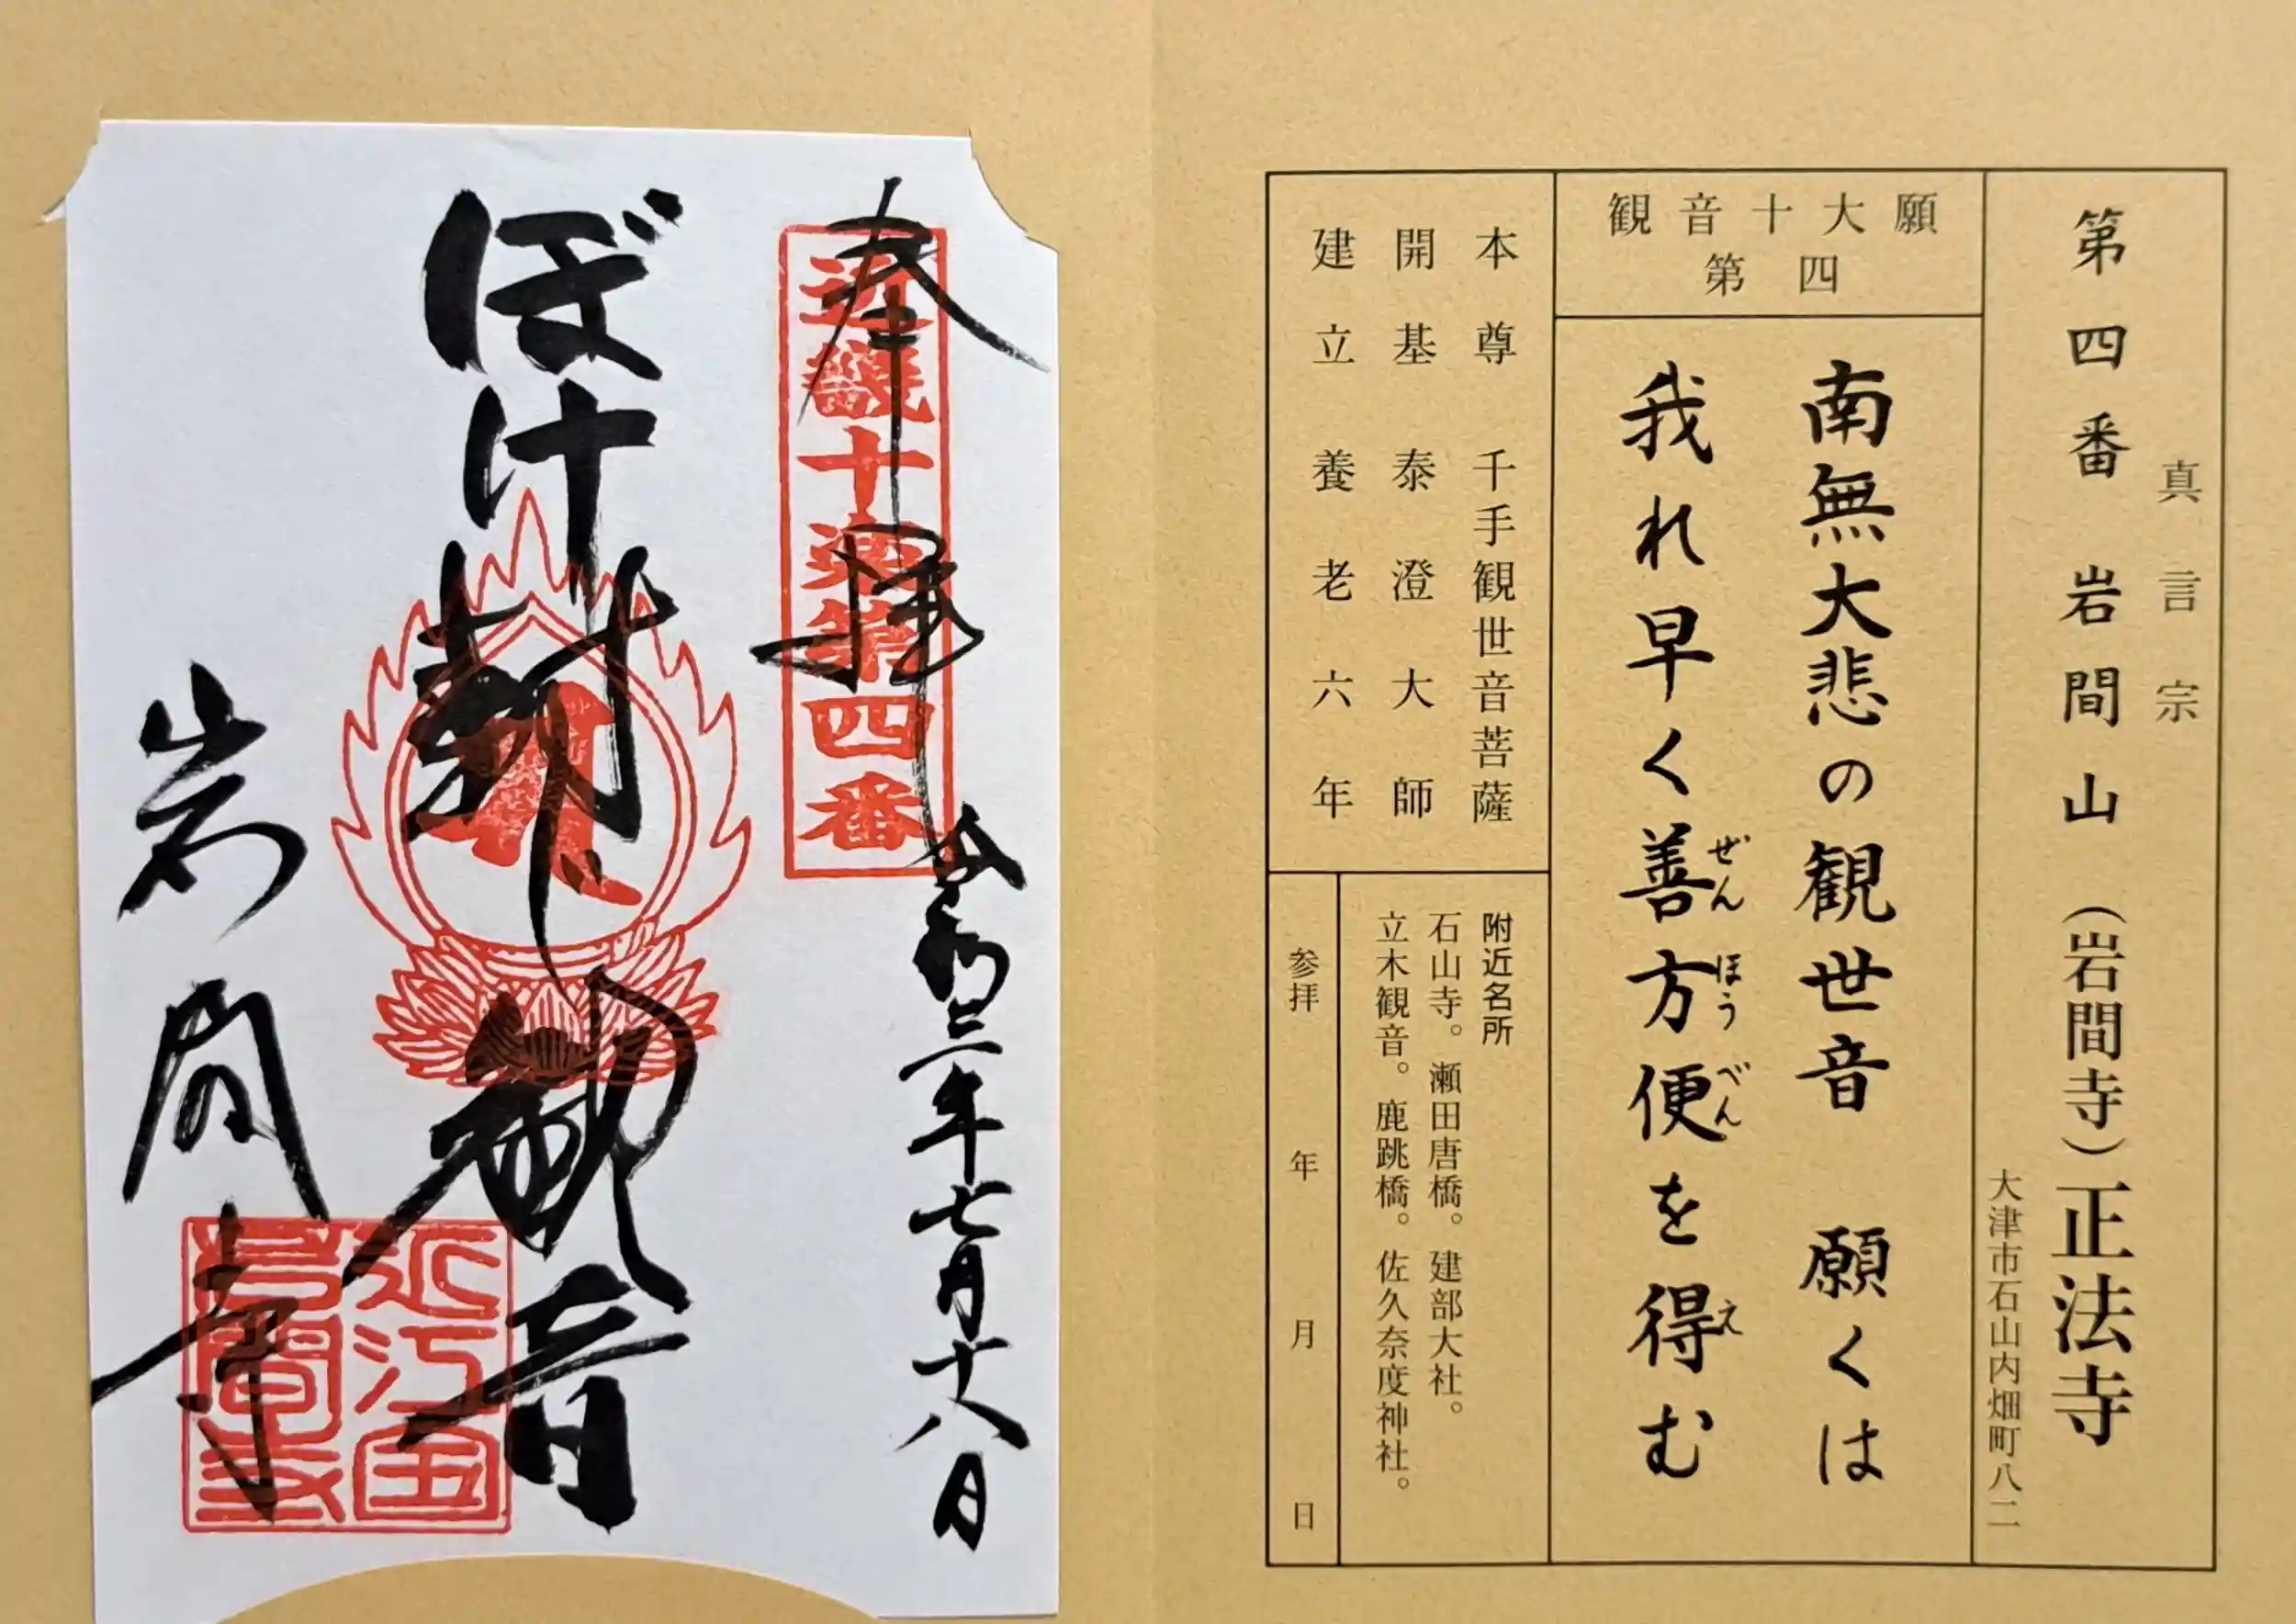 真言宗
第四番 岩間山(岩間寺)正法寺
大津市石山内畑町八二
観音十大願
第四
南無大悲の観世音 願くは
我れ早く善方便を得む
ぜんほうべん え
本尊 千手観世音菩薩
開基 泰澄大師
建立 養老六年
附近名所
石山寺。瀬田唐橋。建部大社。
立木観音。鹿跳橋。佐久奈度神社。
参拝 年 月 日
奉拝
令和三年七月十八日
近畿十楽第四番
ぼけ封じ観音
岩間寺
近江国
岩間寺